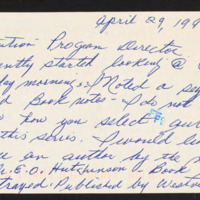 April 29, 199
ution Program Director
ently started looking @
day morning. I Noted a
d Book notes - I do not
how you select
this series. I would
an author by the
E.O. Hutchinson - Book
trayed: Published by